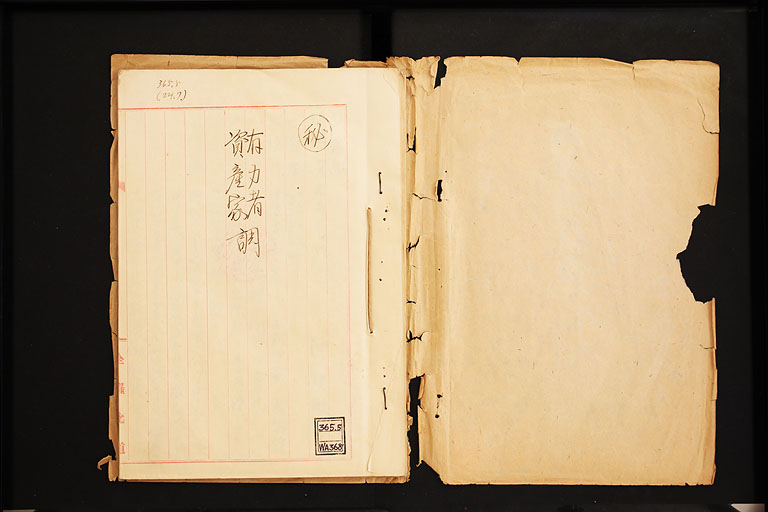 365.5
(24.7)
秘
有力者
資産家
調
365.5
WA368